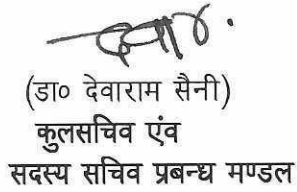 (डा० देवाराम सैनी)
कुलसचिव एंव
सदस्य सचिव प्रबन्ध मण्डल